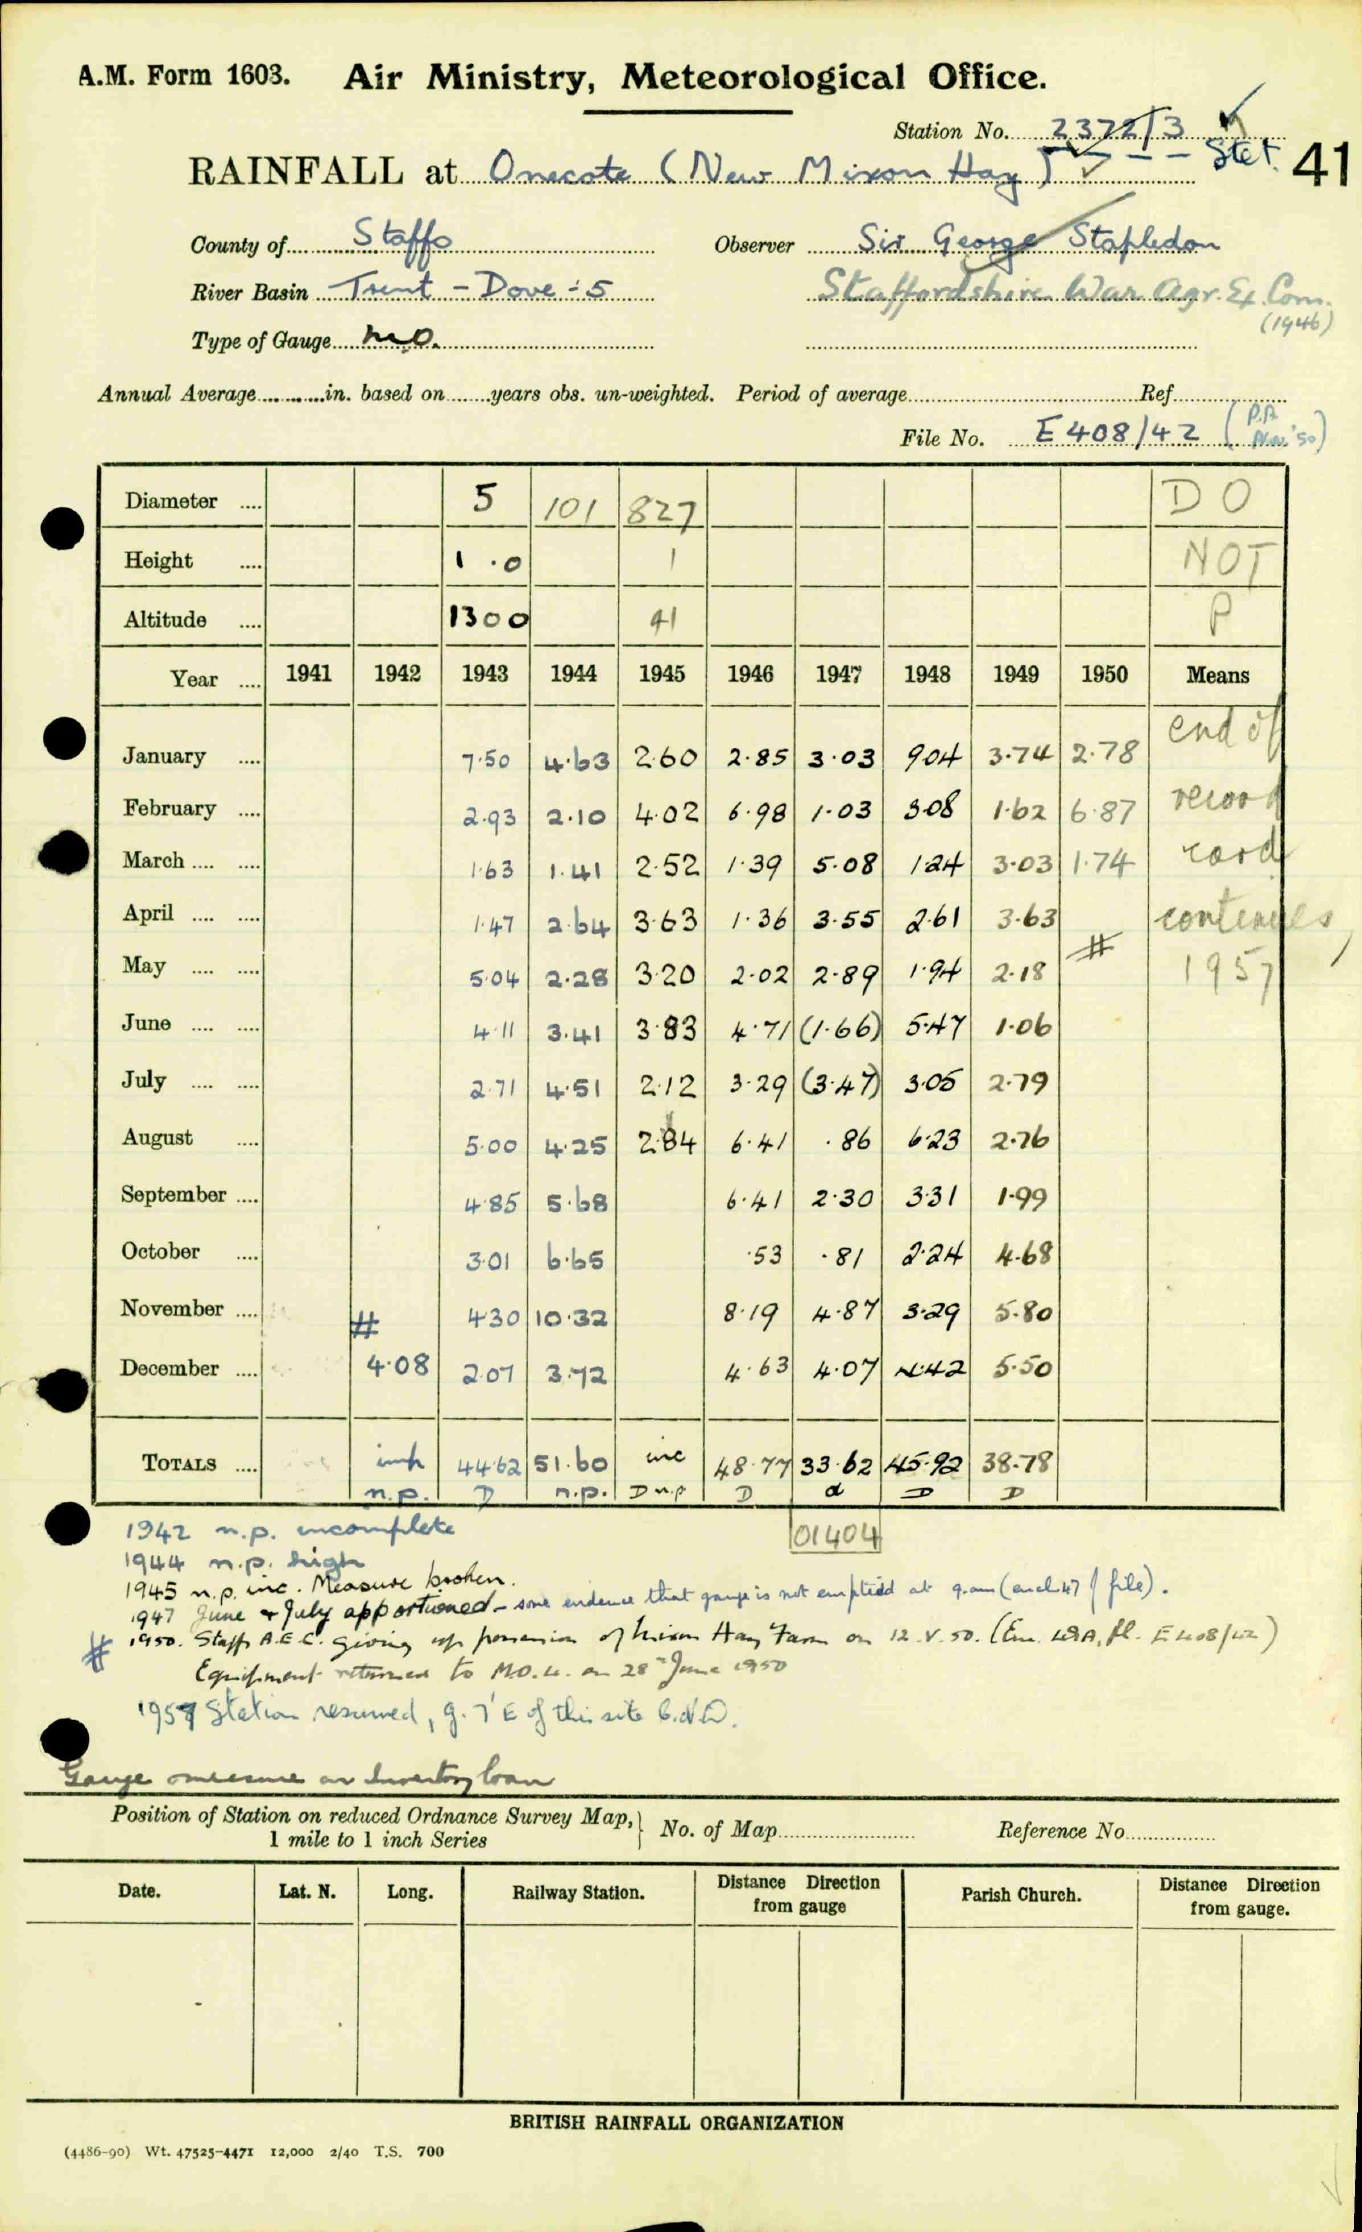 A.M. Form 1603. Air Ministry, Meteorological Office.
Station No. 2372/3
RAINFALL at Onecote (New Mixon Hay) Stet. 41
County of Staffs Observer Sir George Stapledon
River Basin Trent - Dove - 5 Staffordshire War Agr. Ex. Com.
(1946)
Type of Gauge M.O.
Annual Average in. based on years obs. un-weighted. Period of average Ref
File No. E 408/42 (P.A. Nov. '50)
Diameter 5 101 827 DO
Height 1.0 1 NOT
Altitude 1300 41 P
Year 1941 1942 1943 1944 1945 1946 1947 1948 1949 1950 Means
January 7.50 4.63 2.60 2.85 3.03 9.04 3.74 2.78 end of
February 2.93 2.10 4.02 6.98 1.03 3.08 1.62 6.87 record
March 1.63 1.41 2.52 1.39 5.08 1.24 3.03 1.74 card
April 1.47 2.64 3.63 1.36 3.55 2.61 3.63 continues,
May 5.04 2.28 3.20 2.02 2.89 1.94 2.18 # 1957
June 4.11 3.41 3.83 4.71 (1.66) 5.47 1.06
July 2.71 4.51 2.12 3.29 (3.47) 3.05 2.79
August 5.00 4.25 2.84 6.41 .86 6.23 2.76
September 4.85 5.68 6.41 2.30 3.31 1.99
October 3.01 6.65 .53 .81 2.24 4.68
November # 4.30 10.32 8.19 4.87 3.29 5.80
December 4.08 2.07 3.72 4.63 4.07 4.42 5.50
TOTALS inc 44.62 51.60 inc 48.77 33.62 45.92 38.78
n.p. D n.p. D n.p D d D D
01404
1942 n.p. incomplete
1944 n.p. high
1945 n.p. inc. Measure broken.
1947 June & July apportioned - some evidence that gauge is not emptied at 9 am (encl. 47 / file).
# 1950. Staffs A.E.C. giving up possession of Mixon Hay Farm on 12.V.50. (Enc. 48A, fl. E408/42)
Equipment returned to M.O. on 28th June 1950
1957 Station resumed, g. 7' E of this site
Gauge & measure on Inventory loan
Position of Station on reduced Ordnance Survey Map, 1 mile to 1 inch Series No. of Map Reference No.
Date. Lat. N. Long. Railway Station. Distance Direction from gauge Parish Church. Distance Direction from gauge.
BRITISH RAINFALL ORGANIZATION
(4486-90) Wt. 47525-4471 12,000 2/40 T.S. 700